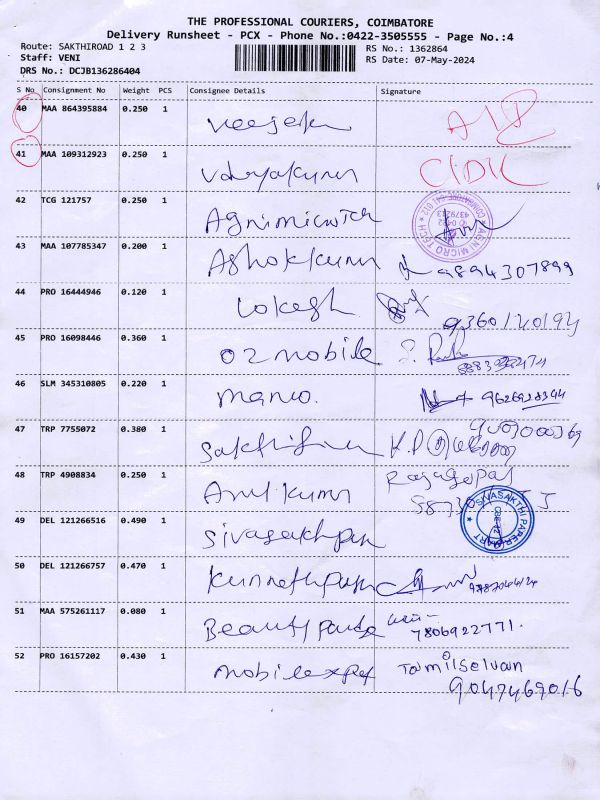 THE PROFESSIONAL COURIERS, COIMBATORE
Delivery Runsheet - PCX - Phone No.:0422-3505555 - Page No.:4
Route: SAKTHIROAD 1 2 3
RS No.: 1362864
Staff: VENI
RS Date: 07-May-2024
DRS No.: DCJB136286404
S No Consignment No Weight PCS Consignee Details Signature
40 MAA 864395884 0.250 1
41 MAA 109312923 0.250 1 Vidyakumar
42 TCG 121757 0.250 1 AGNI MICRO TECH
43 MAA 107785347 0.200 1 Ashokkumar 9894307899
44 PRO 16444946 0.120 1 Lokesh 9360120192
45 PRO 16098446 0.360 1 O2 mobile
46 SLM 345310805 0.220 1 mano. 9626928344
47 TRP 7755072 0.380 1
48 TRP 4908834 0.250 1 Arul kumar Rajagopal
49 DEL 121266516 0.490 1 SIVASAKTHI PAPER MART
50 DEL 121266757 0.470 1
51 MAA 575261117 0.080 1 Beauty parlo 7806922771.
52 PRO 16157202 0.430 1 mobile xpet Tamilselvan
9047469016